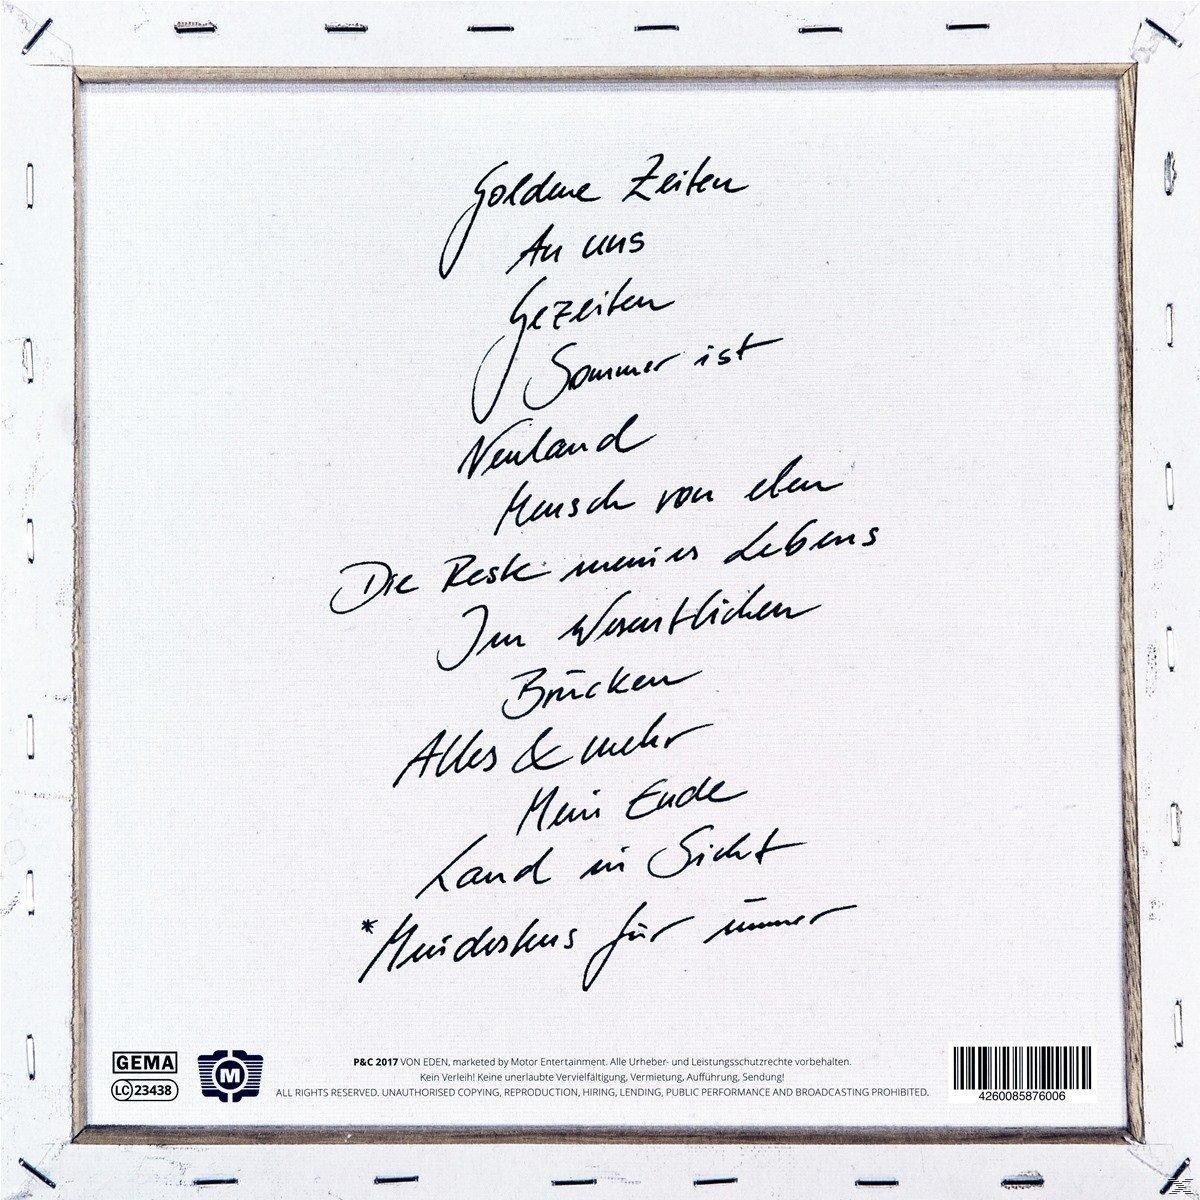 Goldene Zeiten
An uns
Gezeiten
Sommer ist
Neuland
Mensch von eben
Die Reste meines Lebens
Im Wesentlichen
Brücken
Alles & mehr
Mein Ende
Land in Sicht
*Mindestens für immer
GEMA
LC 23438
M
P&C 2017 VON EDEN, marketed by Motor Entertainment. Alle Urheber- und Leistungsschutzrechte vorbehalten.
Kein Verleih! Keine unerlaubte Vervielfältigung, Vermietung, Aufführung, Sendung!
ALL RIGHTS RESERVED. UNAUTHORISED COPYING, REPRODUCTION, HIRING, LENDING, PUBLIC PERFORMANCE AND BROADCASTING PROHIBITED.
4260085876006